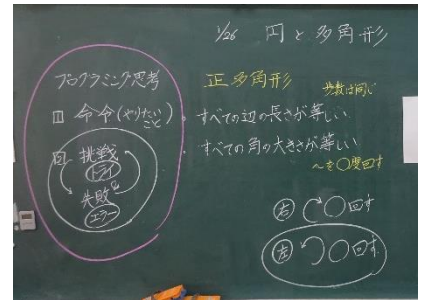 1/26 円と多角形
プログラミング思考
① 命令(やりたいこと)
② 挑戦
トライ
失敗
エラー
正多角形
歩数は同じ
・すべての辺の長さが等しい
・すべての角の大きさが等しい
〜を○度回す
右 ○回す
左 ○回す